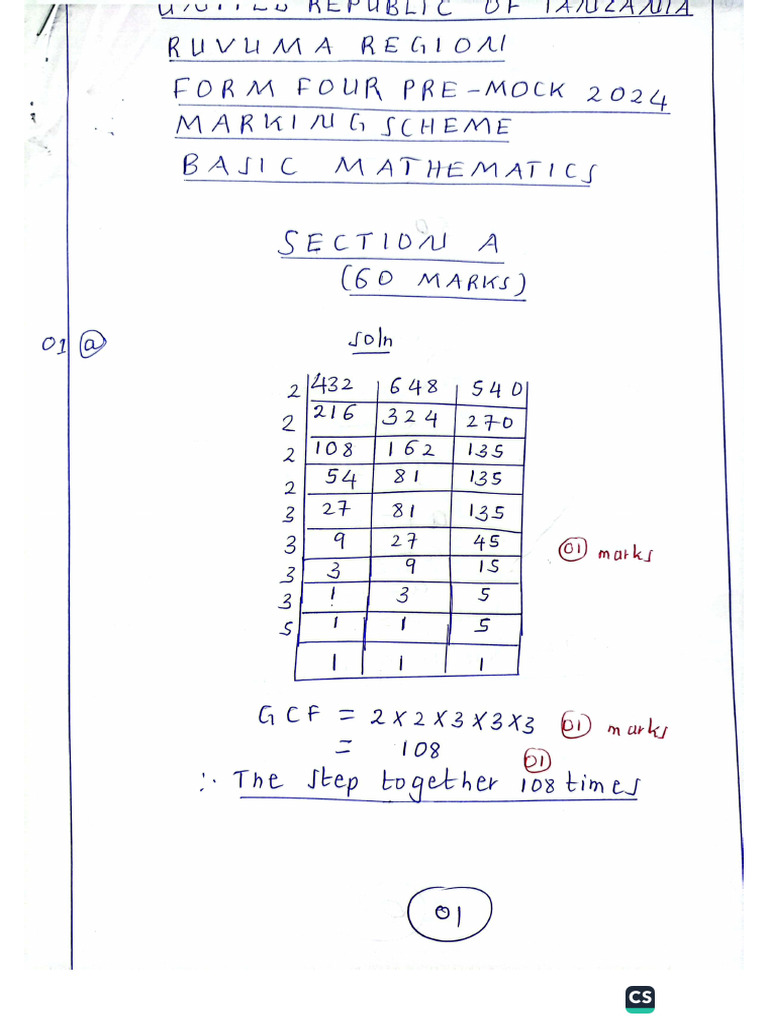 UNITED REPUBLIC OF TANZANIA
RUVUMA REGION
FORM FOUR PRE-MOCK 2024
MARKING SCHEME
BASIC MATHEMATICS
SECTION A
(60 MARKS)
01 (a) soln
2 | 432 | 648 | 540
2 | 216 | 324 | 270
2 | 108 | 162 | 135
2 | 54 | 81 | 135
3 | 27 | 81 | 135
3 | 9 | 27 | 45 (01) marks
3 | 3 | 9 | 15
3 | 1 | 3 | 5
5 | 1 | 1 | 5
1 | 1 | 1
GCF = 2 x 2 x 3 x 3 x 3 (01) marks
= 108
(01)
∴ The step together 108 times
01
CS